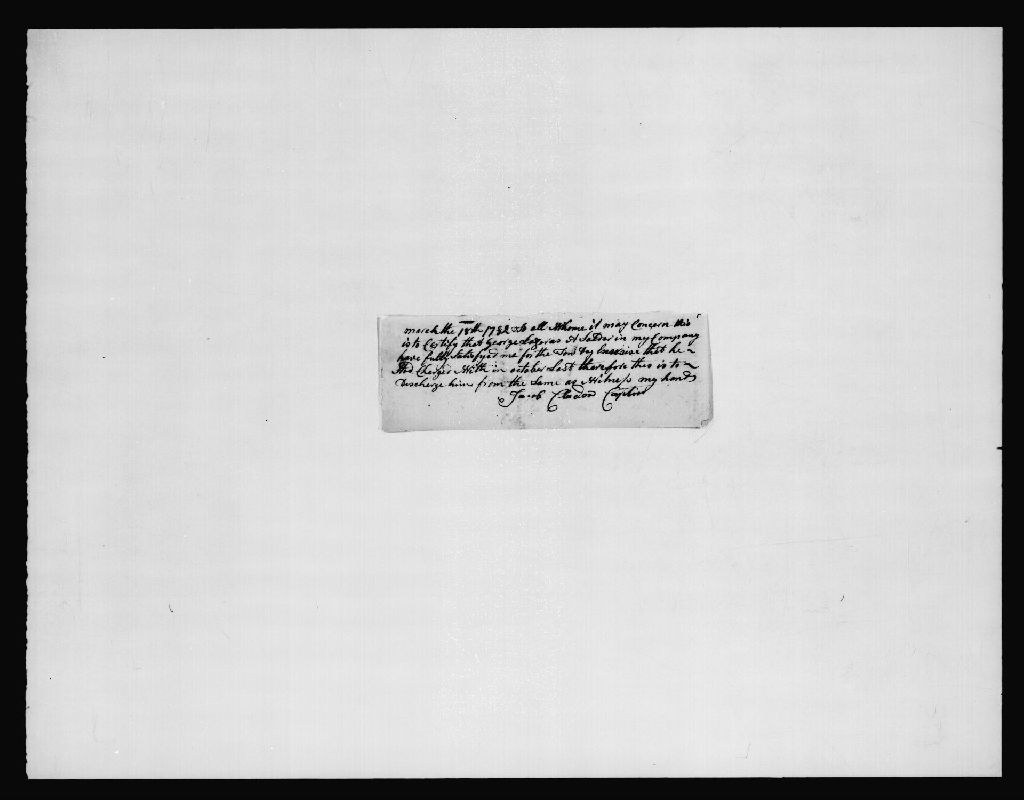 march the 18th 1782 to all Whome it may Concern this
is to Certify that George Lazerus A Solder in my Company
have fully Satisfyed me for the that he
And Charged With in october Last therefore this is to
Discharge him from the Same as Witness my hand
Jacob Captin